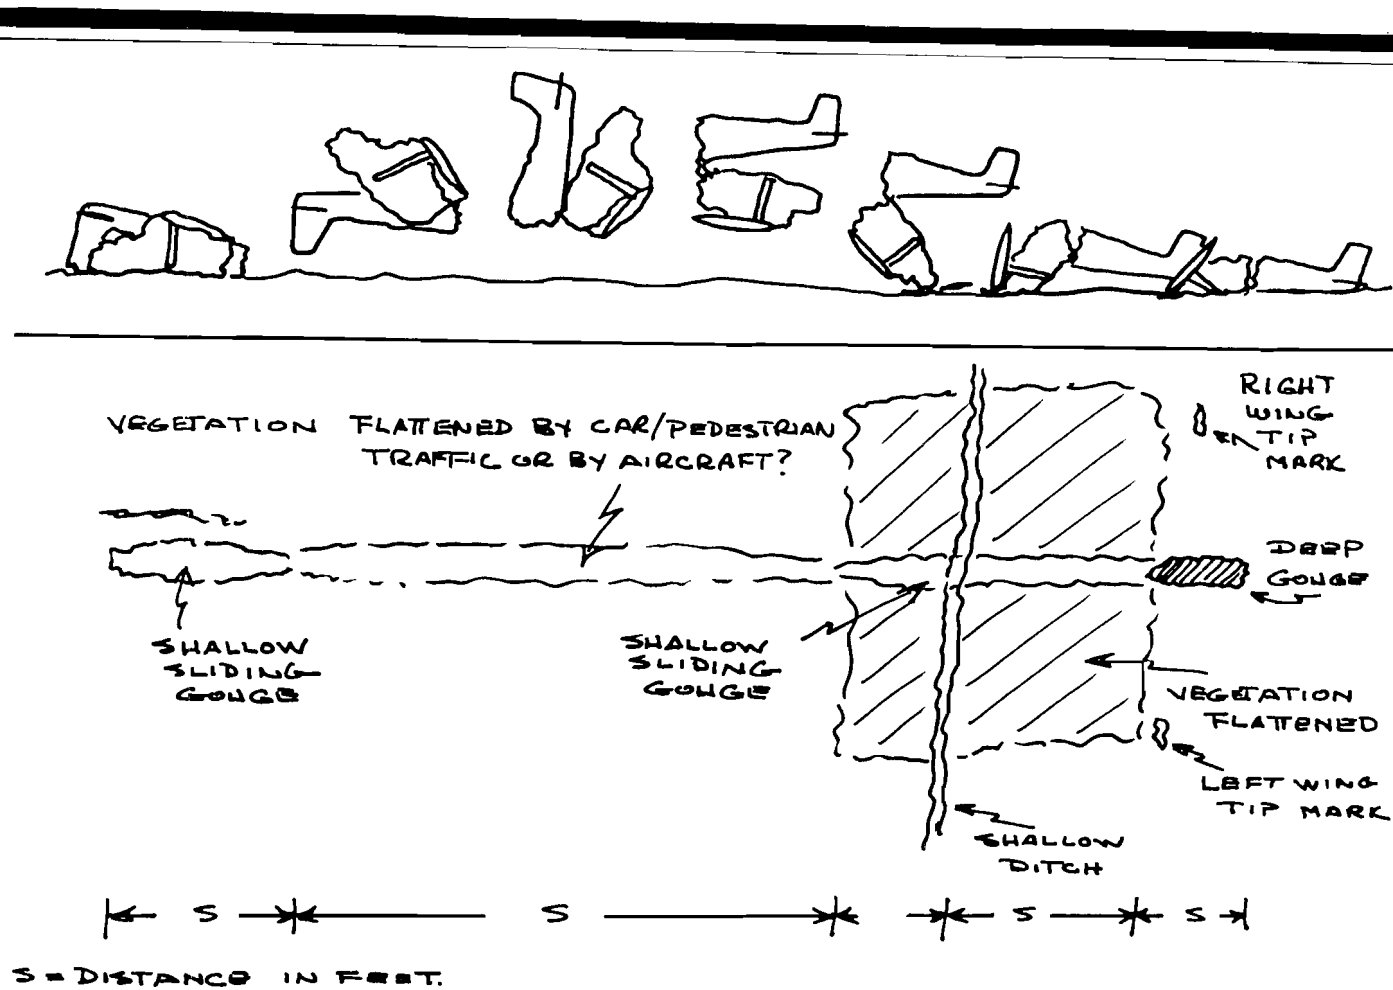 VEGETATION FLATTENED BY CAR/PEDESTRIAN
TRAFFIC OR BY AIRCRAFT?
RIGHT
WING
TIP
MARK
DEEP
GOUGE
SHALLOW
SLIDING
GOUGE
SHALLOW
SLIDING
GOUGE
VEGETATION
FLATTENED
LEFT WING
TIP MARK
SHALLOW
DITCH
S S S S
S = DISTANCE IN FEET.